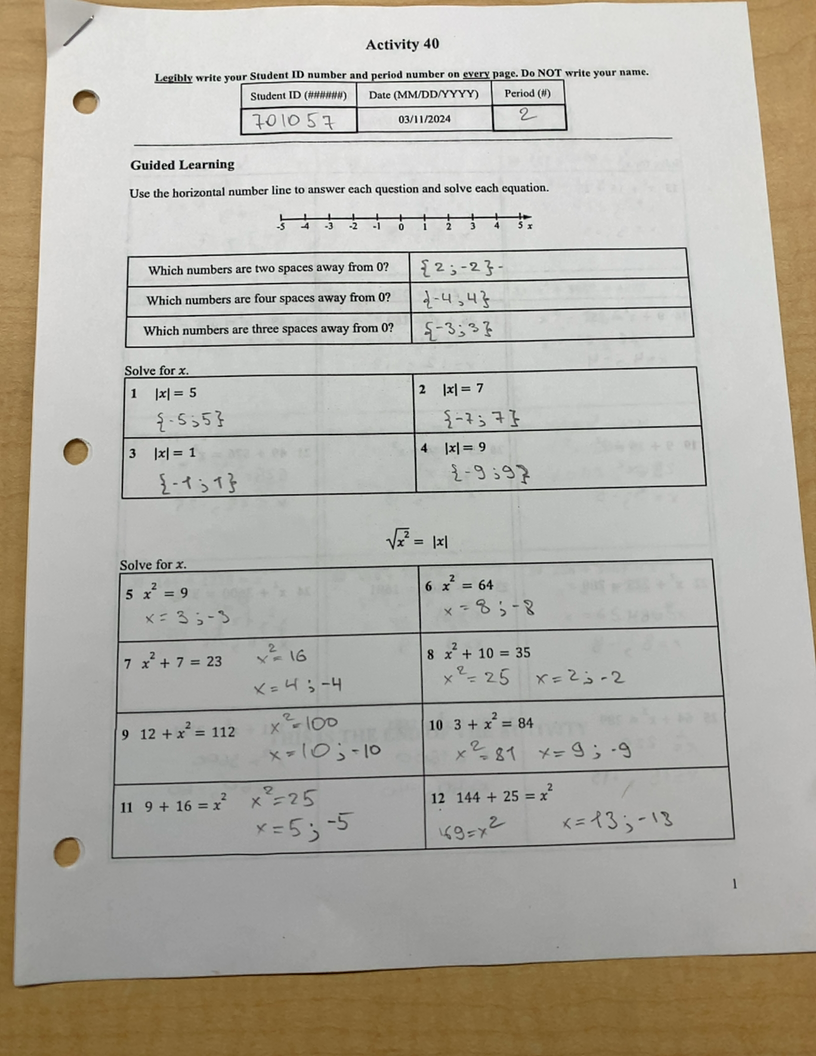 Activity 40
Legibly write your Student ID number and period number on every page. Do NOT write your name.
Student ID (######) Date (MM/DD/YYYY) Period (#)
701057 03/11/2024 2
Guided Learning
Use the horizontal number line to answer each question and solve each equation.
-5 -4 -3 -2 -1 0 1 2 3 4 5 x
Which numbers are two spaces away from 0? {2;-2}-
Which numbers are four spaces away from 0? {-4,4}
Which numbers are three spaces away from 0? {-3;3}
Solve for x.
1 |x| = 5
{-5;5}
2 |x| = 7
{-7;7}
3 |x| = 1
{-1;1}
4 |x| = 9
{-9;9}
√x² = |x|
Solve for x.
5 x² = 9
x = 3;-3
6 x² = 64
x = 8;-8
7 x² + 7 = 23 x²=16
x=4;-4
8 x² + 10 = 35
x²=25 x=2;-2
9 12 + x² = 112 x²=100
x=10;-10
10 3 + x² = 84
x²=81 x=9;-9
11 9 + 16 = x² x²=25
x=5;-5
12 144 + 25 = x²
169=x² x=13;-13
1